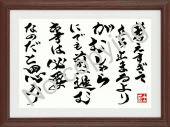 考えすぎて
立ち止まるより
がむしゃら
にでも前に進む
事は必要
なのだと思う